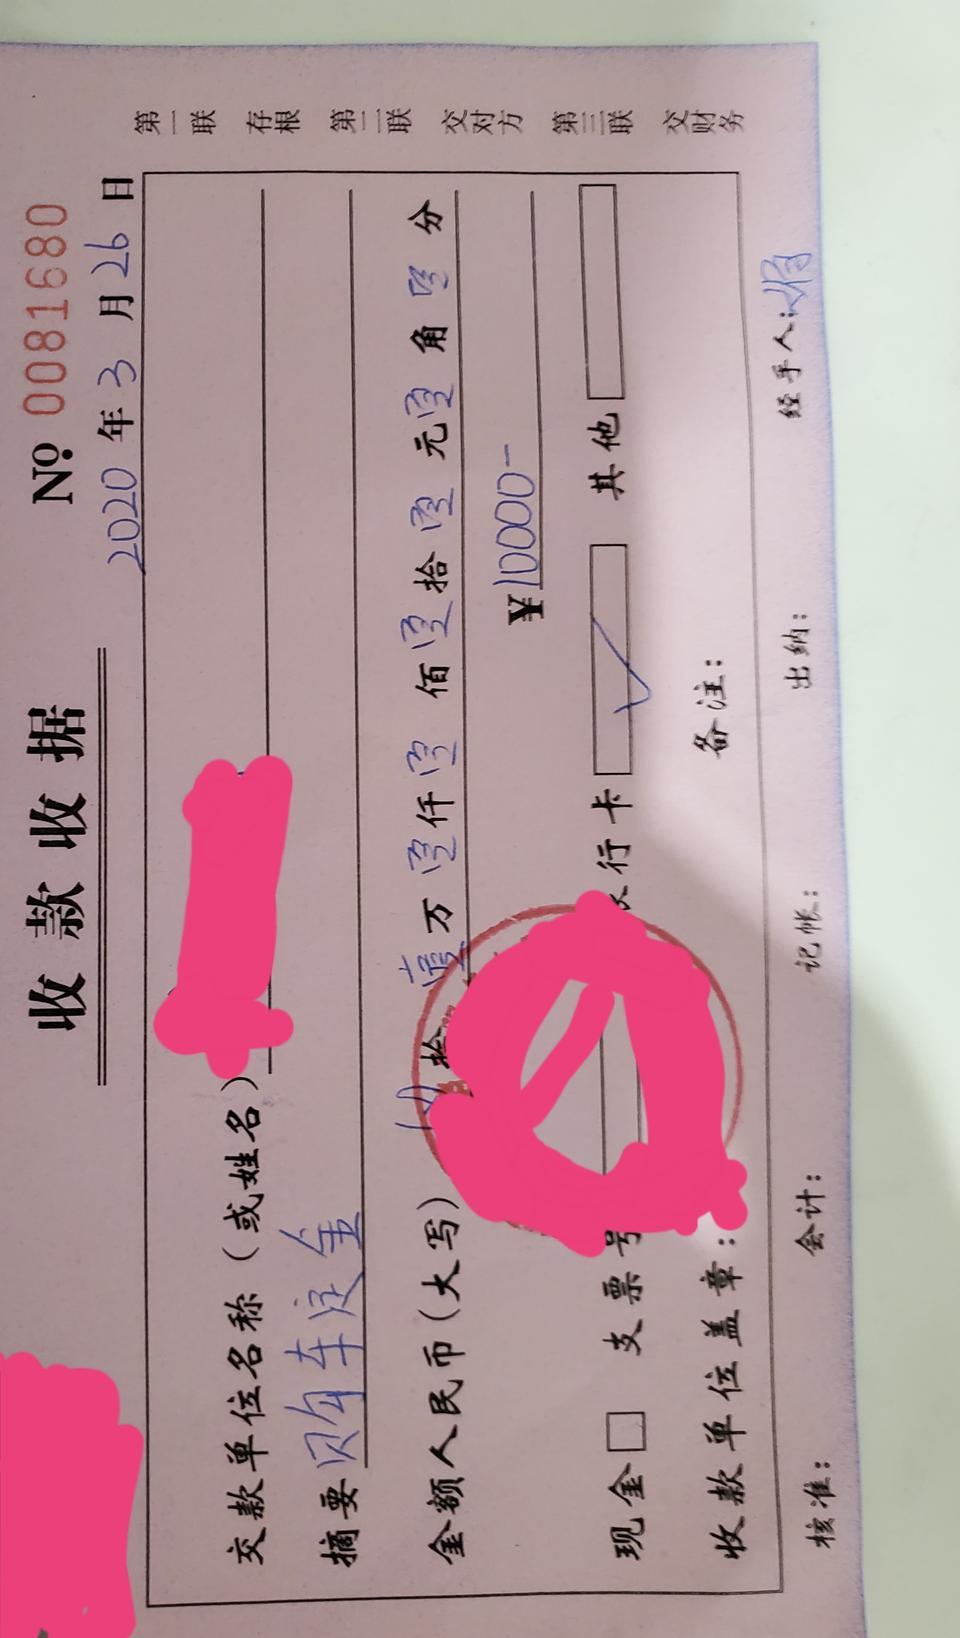 收款收据
№ 0081680
2020年3月26日
交款单位名称(或姓名)
摘要 购车定金
金额人民币(大写) 拾壹万零仟零佰零拾零元零角零分
¥10000-
现金 支票号 行卡 ✓ 其他
收款单位盖章: 备注:
核准: 会计: 记帐: 出纳: 经手人:
第一联 存根 第二联 交对方 第三联 交财务